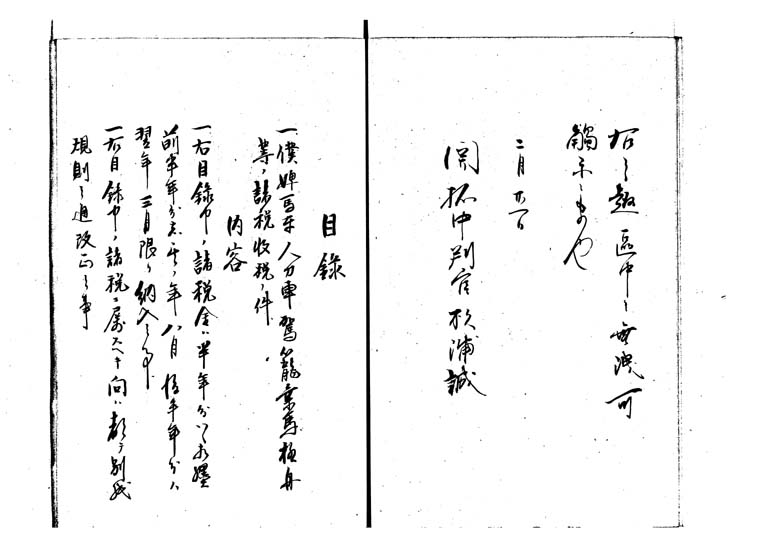 右之趣区中ヘ無洩可
觸示もの也
二月廿八日
開拓中判官杉浦誠
目録
一僕婢馬車人力車駕籠乗馬遊舟
等ノ諸税収税ノ件
内容
一右目録中ノ諸税金ハ半年分ツヽ
前半年分ハ其ノ年八月後半年分ハ
翌年二月限リ納入之事
一右目録中ノ諸税ニ属スヘキ向ハ都テ別紙
規則之通改正之事